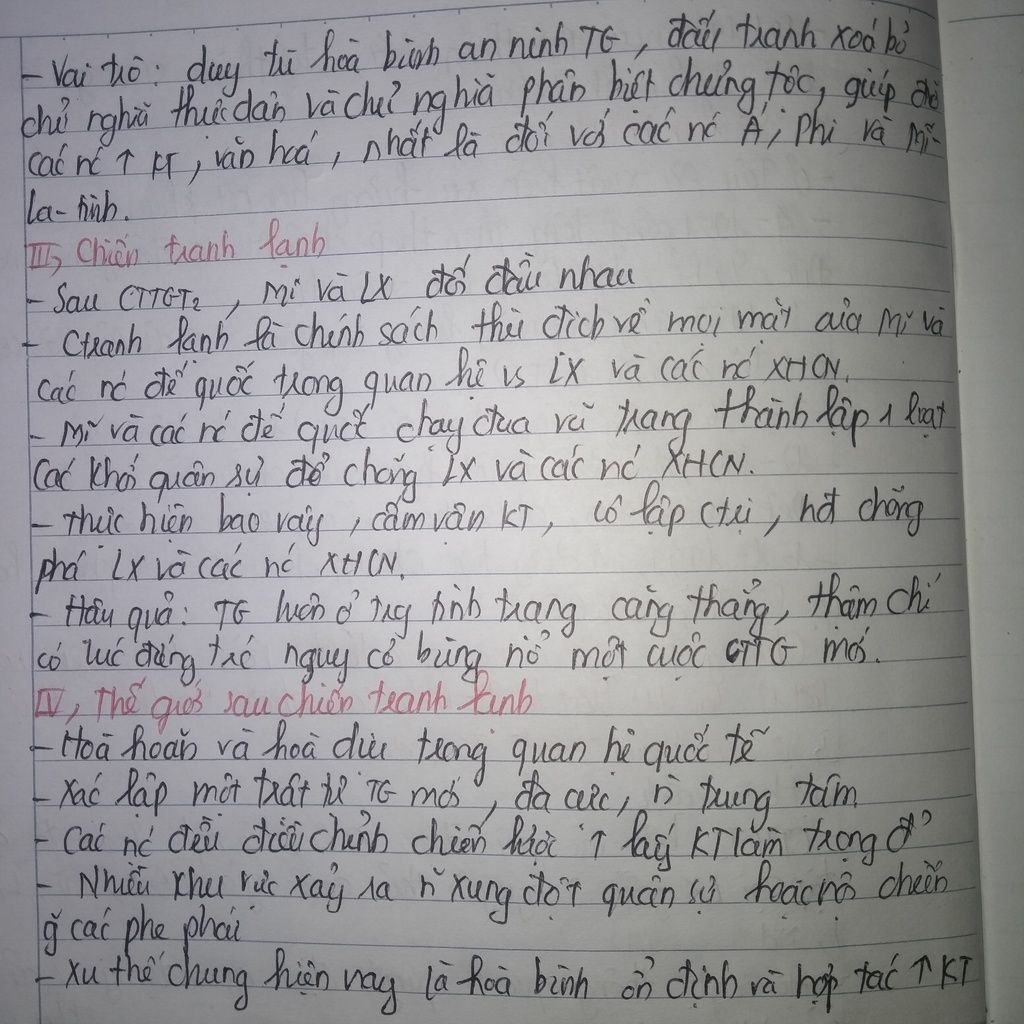 - Vai trò: duy trì hoà bình an ninh TG, đấu tranh xoá bỏ
chủ nghĩa thực dân và chủ nghĩa phân biệt chủng tộc, giúp đỡ
các nc ↑ KT, văn hoá, nhất là đối với các nc Á, Phi và Mĩ-
La-tinh.
III, Chiến tranh lạnh
- Sau CTTGT2, Mĩ và LX đối đầu nhau
- Ctranh lạnh là chính sách thù địch về mọi mặt của Mĩ và
các nc đế quốc trong quan hệ vs LX và các nc XHCN.
- Mĩ và các nc đế quốc chạy đua vũ trang thành lập 1 loạt
các khối quân sự để chống LX và các nc XHCN.
- Thực hiện bao vây, cấm vận KT, cô lập ctrị, hđ chống
phá LX và các nc XHCN.
- Hậu quả: TG luôn ở trg tình trạng căng thẳng, thậm chí
có lúc đứng trc nguy cơ bùng nổ một cuộc CTTG mới.
IV, Thế giới sau chiến tranh lạnh
- Hoà hoãn và hoà dịu trong quan hệ quốc tế
- Xác lập một trật tự TG mới, đa cực, n̄ trung tâm
- Các nc đều điều chỉnh chiến lược ↑ lấy KT làm trọng đ'
- Nhiều khu vực xảy ra n̄ xung đột quân sự hoặc nội chiến
g̃ các phe phái
- Xu thế chung hiện nay là hoà bình ổn định và hợp tác ↑ KT